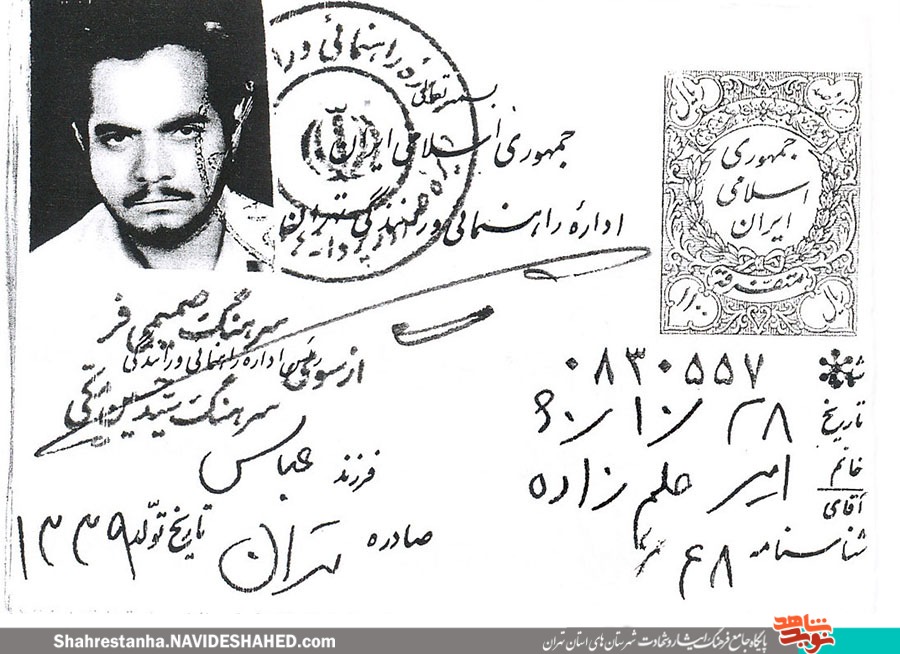 بسمه تعالی
جمهوری اسلامی ایران
اداره راهنمائی و رانندگی تهران
ریال ریال
جمهوری
اسلامی
ایران
متفرقه
ریال
سرهنگ صمیمی فر
از سوی رئیس اداره راهنمائی و رانندگی
سرهنگ سید حسین
۰۸۳۰۵۵۷
تاریخ ۲۸/۱۰/۶۰
خانم
آقای امیر علم زاده
فرزند عباس
شناسنامه ۶۸
صادره تهران
تاریخ تولد ۱۳۳۹
Shahrestanha.NAVIDESHAHED.com
پایگاه جامع فرهنگ ایثار و شهادت شهرستان های استان تهران
نوید شاهد